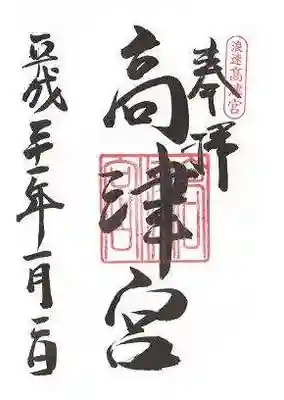 浪速高津宮
奉拝
高津宮
平成三十一年一月二日